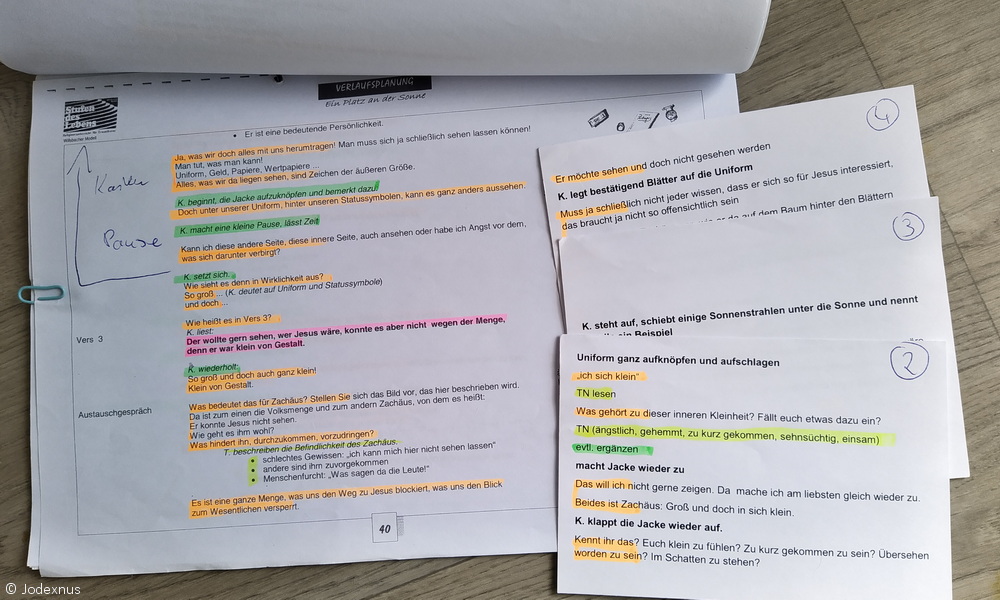 VERLAUFSPLANUNG
Ein Platz an der Sonne
Stufen
des
Lebens
• Er ist eine bedeutende Persönlichkeit.
Ja, was wir doch alles mit uns herumtragen! Man muss sich ja schließlich sehen lassen können!
Man tut, was man kann!
Uniform, Geld, Papiere, Wertpapiere ...
Alles, was wir da liegen sehen, sind Zeichen der äußeren Größe.
K. beginnt, die Jacke aufzuknöpfen und bemerkt dazu:
Doch unter unserer Uniform, hinter unseren Statussymbolen, kann es ganz anders aussehen.
K. macht eine kleine Pause, lässt Zeit
Pause
Kann ich diese andere Seite, diese innere Seite, auch ansehen oder habe ich Angst vor dem,
was sich darunter verbirgt?
K. setzt sich.
Wie sieht es denn in Wirklichkeit aus?
So groß ... (K. deutet auf Uniform und Statussymbole)
und doch ...
Wie heißt es in Vers 3?
K. liest:
Vers 3
Der wollte gern sehen, wer Jesus wäre, konnte es aber nicht wegen der Menge,
denn er war klein von Gestalt.
K. wiederholt:
So groß und doch auch ganz klein!
Klein von Gestalt.
Austauschgespräch
Was bedeutet das für Zachäus? Stellen Sie sich das Bild vor, das hier beschrieben wird.
Da ist zum einen die Volksmenge und zum andern Zachäus, von dem es heißt:
Er konnte Jesus nicht sehen.
Wie geht es ihm wohl?
Was hindert ihn, durchzukommen, vorzudringen?
T. beschreiben die Befindlichkeit des Zachäus.
• schlechtes Gewissen: „ich kann mich hier nicht sehen lassen"
• andere sind ihm zuvorgekommen
• Menschenfurcht: „Was sagen da die Leute!"
Es ist eine ganze Menge, was uns den Weg zu Jesus blockiert, was uns den Blick
zum Wesentlichen versperrt.
40
4
Er möchte sehen und doch nicht gesehen werden
K. legt bestätigend Blätter auf die Uniform
Muss ja schließlich nicht jeder wissen, dass er sich so für Jesus interessiert,
das braucht ja nicht so offensichtlich sein
auf dem Raum hinter den Blättern
3
K. steht auf, schiebt einige Sonnenstrahlen unter die Sonne und nennt
ein Beispiel
2
Uniform ganz aufknöpfen und aufschlagen
„ich sich klein"
TN lesen
Was gehört zu dieser inneren Kleinheit? Fällt euch etwas dazu ein?
TN (ängstlich, gehemmt, zu kurz gekommen, sehnsüchtig, einsam)
evtl. ergänzen
macht Jacke wieder zu
Das will ich nicht gerne zeigen. Da mache ich am liebsten gleich wieder zu.
Beides ist Zachäus: Groß und doch in sich klein.
K. klappt die Jacke wieder auf.
Kennt ihr das? Euch klein zu fühlen? Zu kurz gekommen zu sein? Übersehen
worden zu sein? Im Schatten zu stehen?
© Jodexnus